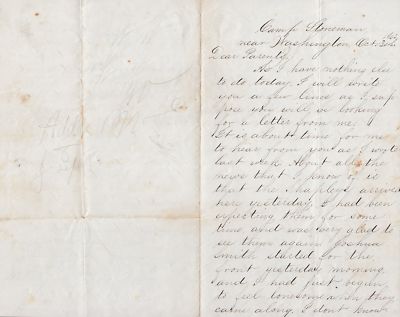 Camp Stoneman
near Washington Oct. 30th
Dear Parents,
As I have nothing else
to do today I will write
you a few lines as I sup
pose you will be looking
for a letter from me.
It is about time for me
to hear from you as I wrote
last week. About all the
news that I know of is
that the Shapleys arrived
here yesterday. I had been
expecting them for some
time and was very glad to
see them again. Joshua
Smith started for the
front yesterday morning
and I had just begun
to feel lonesome when they
came along. I dont know